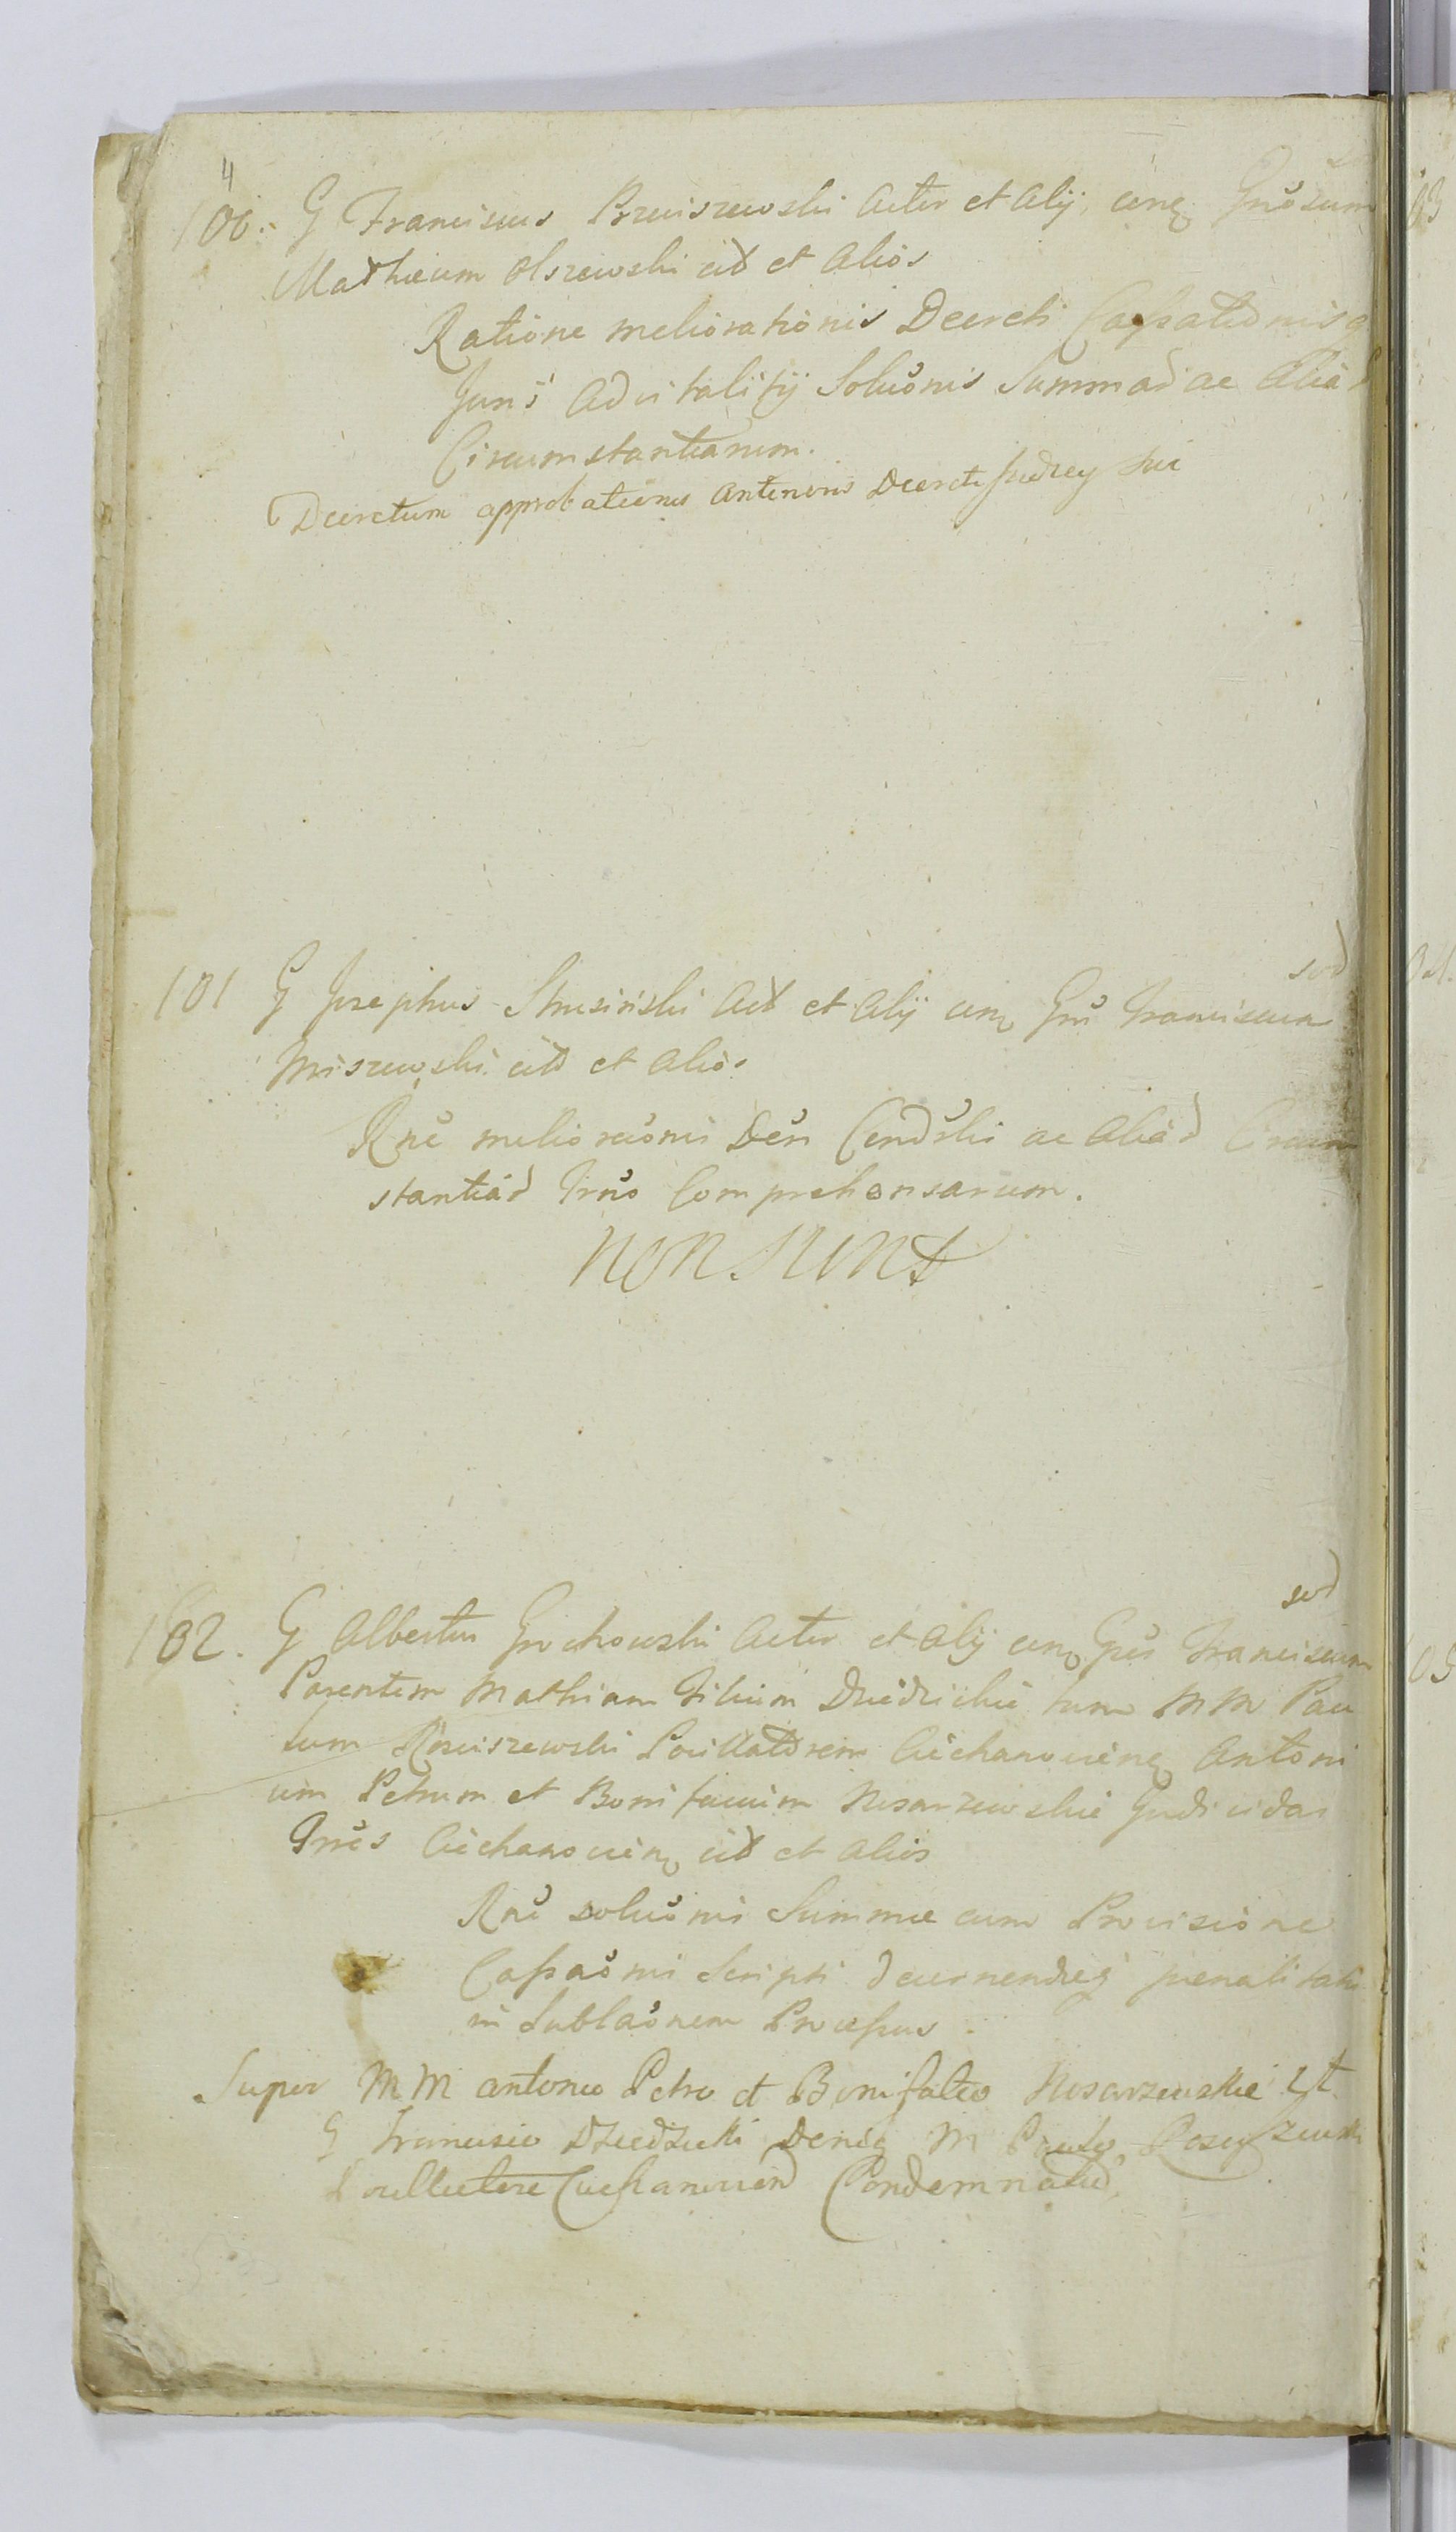 4
100. G Franciscus Brzeiszewski Actor et Alij cing Gnosum
Mathæum Olszewski cit et Alios
Ratione meliorationis Decreti Cassationisq
Juris Advitalitij Soluonis Summad ac Aliad
Circumstantiarum.
Decretum approbationis Anterioris Decreti
sod
101 G Josephus Strusinski Act et Alij cum Gm Franciscum
Miszewski cit et Alios
Rne meliorauonis Den Cendski ac Aliad Circum
stantiad Irmo Comprehensarum.
NON SUNT
sod
102. G Albertus Grochowski Actor et Alij cum Gus Franciscum
Parentem Mathiam Filium Dziedzickie tum MM Pau
lum Rosciszewski Pocillatorem Ciechanovieng Antoni
um Petrum et Bonifacium Nosarzewskie Judicidas
Trres Ciechanovieng cit et Alios
Rne soluonis Summæ cum Provisione
Cassaonis Scripti decernendæq penalitatis
in Sublaonem Processus
Super MM Antonio Petro et Bonifatio Nosarzewskie et
G Francisco Dziedzicki Deniq M Paulo Rosciszewski
Pocillatore Ciechanovien Condemnatio